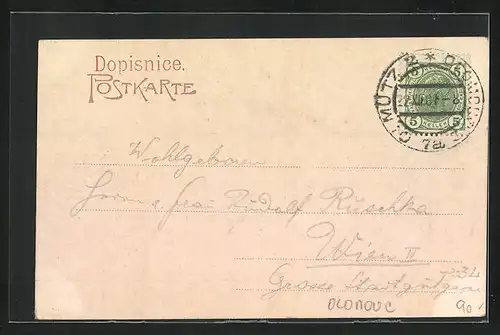 Dopisnice.
POSTKARTE
OLMÜTZ 2 * OLOMOUC
5 5
5 HELLER 5
7a
Wohlgeboren
Herrn e. Frau Rudolf Ruschka
Wien II
Grosse Stadtgutgasse
OLOMOUC
90